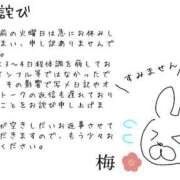 詫び
前の火曜日は急にお休みし
まい、申し訳ありませんで
た。
3〜4日程体調を崩してお
インフル等ではなかったで
、その影響で写メ日記やオ
トークの返信も遅れており
ことをお詫び申し上げま
が空きしだいお返事させて
だきますので、もう少々お
ください。
すみません!
梅